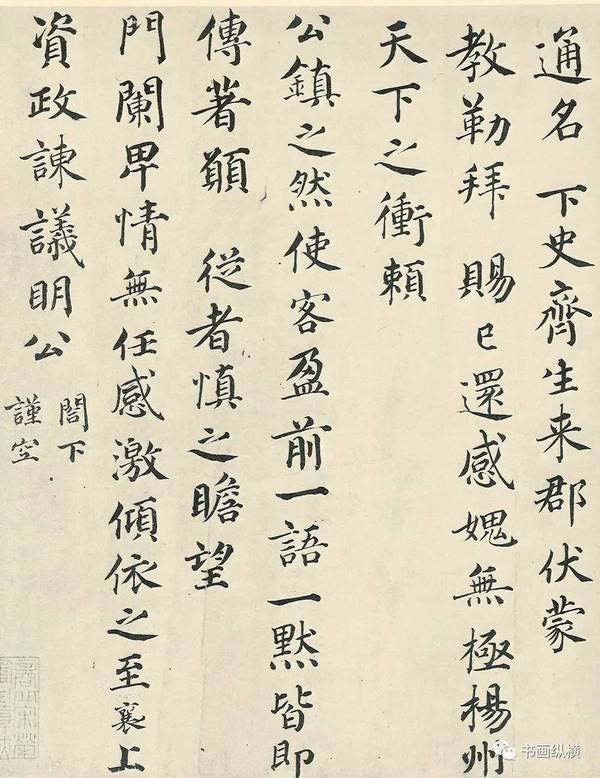 通名 下史齊生来郡伏蒙
教勒拜賜已還感媿無極楊州
天下之衝頼
公鎮之然使客盈前一語一默皆即
傳著顧 従者慎之瞻望
門闌卑情無任感激傾依之至襄上
資政諫議明公
閤下
謹空
书画纵横